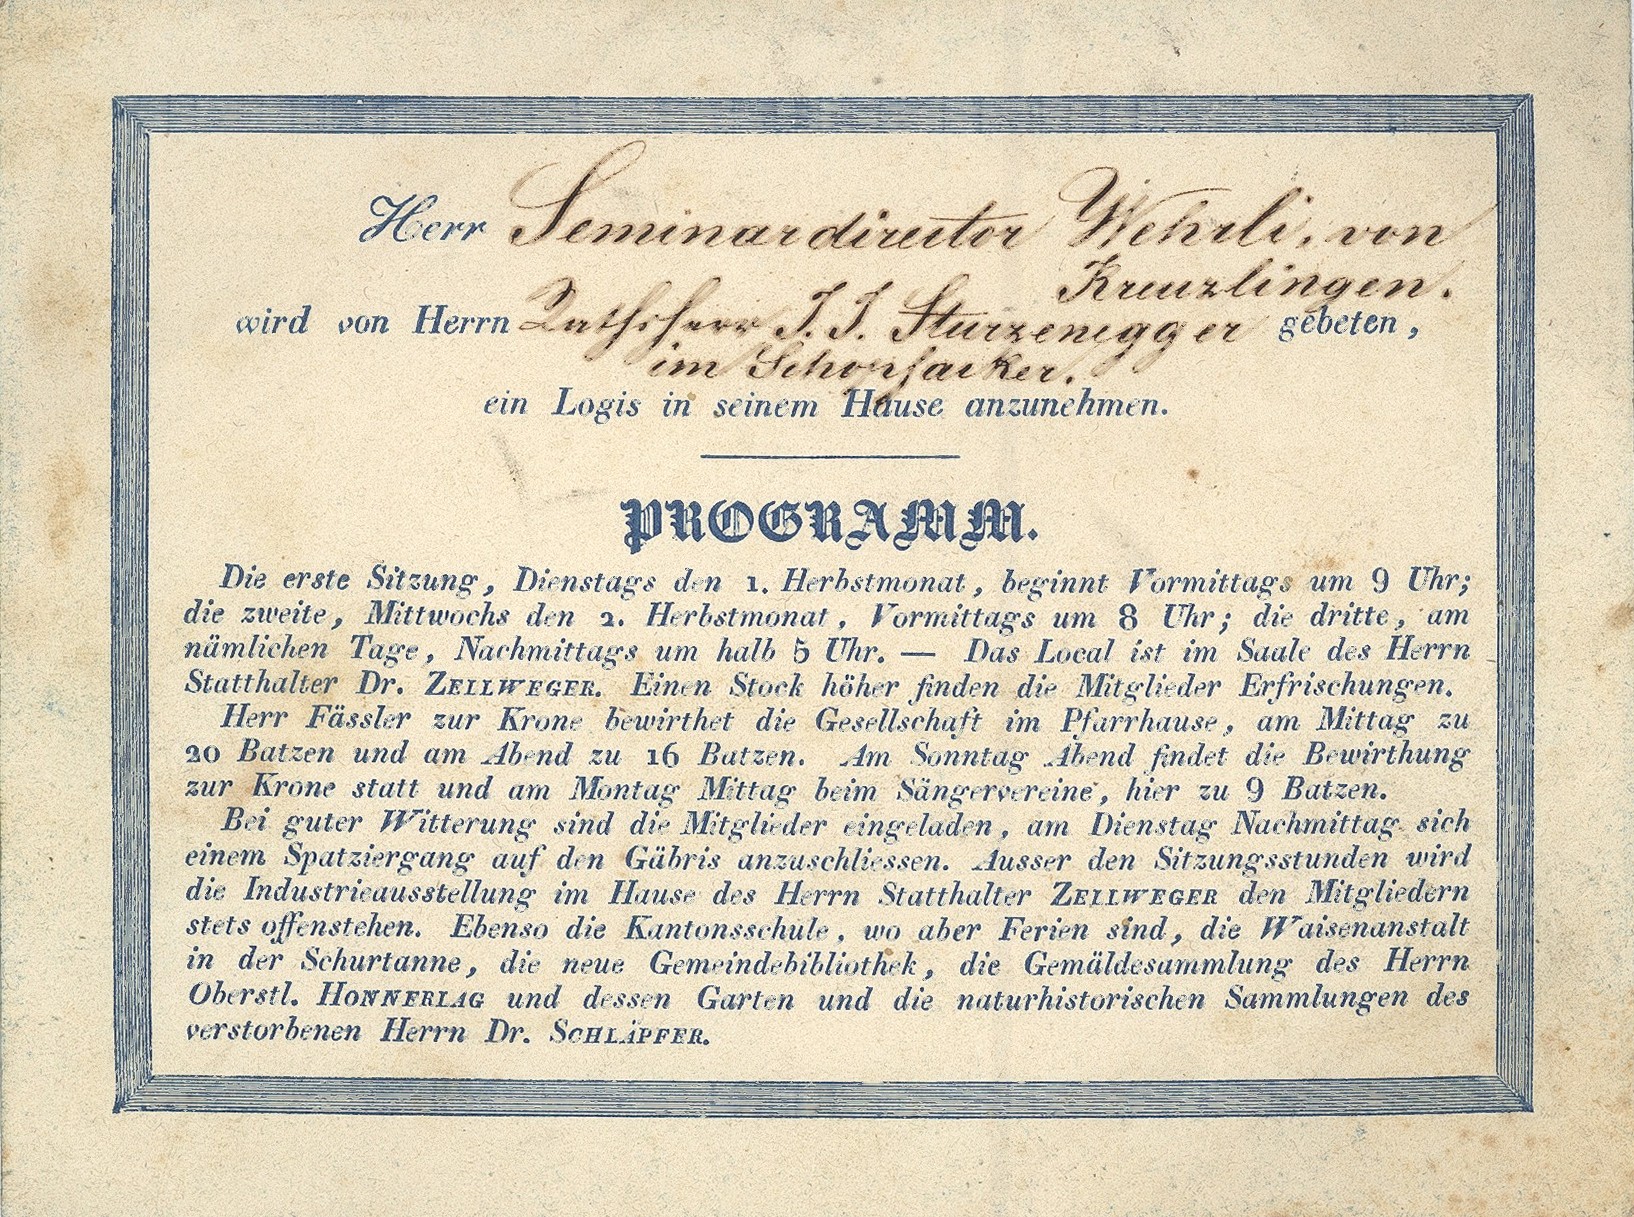 Herr Seminardirector Wehrli, von
Kreuzlingen.
wird von Herrn Rathsherr J. J. Sturzenegger gebeten,
im Schopfacker.
ein Logis in seinem Hause anzunehmen.
PROGRAMM.
Die erste Sitzung, Dienstags den 1. Herbstmonat, beginnt Vormittags um 9 Uhr;
die zweite, Mittwochs den 2. Herbstmonat, Vormittags um 8 Uhr; die dritte, am
nämlichen Tage, Nachmittags um halb 5 Uhr. — Das Local ist im Saale des Herrn
Statthalter Dr. ZELLWEGER. Einen Stock höher finden die Mitglieder Erfrischungen.
Herr Fässler zur Krone bewirthet die Gesellschaft im Pfarrhause, am Mittag zu
20 Batzen und am Abend zu 16 Batzen. Am Sonntag Abend findet die Bewirthung
zur Krone statt und am Montag Mittag beim Sängervereine, hier zu 9 Batzen.
Bei guter Witterung sind die Mitglieder eingeladen, am Dienstag Nachmittag sich
einem Spatziergang auf den Gäbris anzuschliessen. Ausser den Sitzungsstunden wird
die Industrieausstellung im Hause des Herrn Statthalter ZELLWEGER den Mitgliedern
stets offenstehen. Ebenso die Kantonsschule, wo aber Ferien sind, die Waisenanstalt
in der Schurtanne, die neue Gemeindebibliothek, die Gemäldesammlung des Herrn
Oberstl. HONNERLAG und dessen Garten und die naturhistorischen Sammlungen des
verstorbenen Herrn Dr. SCHLÄPFER.